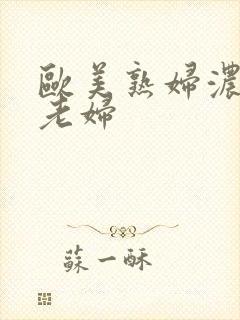 歐美熟婦濃
老婦
蘇一酥